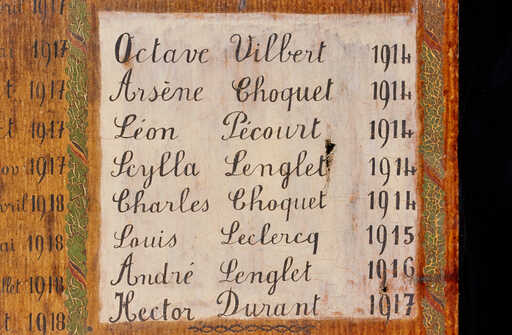 1917
1917
t 1917
t 1917
ov 1917
vril 1918
ai 1918
llet 1918
t. 1918
Octave Vilbert 1914
Arsène Choquet 1914
Léon Pécourt 1914
Scylla Lenglet 1914
Charles Choquet 1914
Louis Leclercq 1915
André Lenglet 1916
Hector Durant 1917